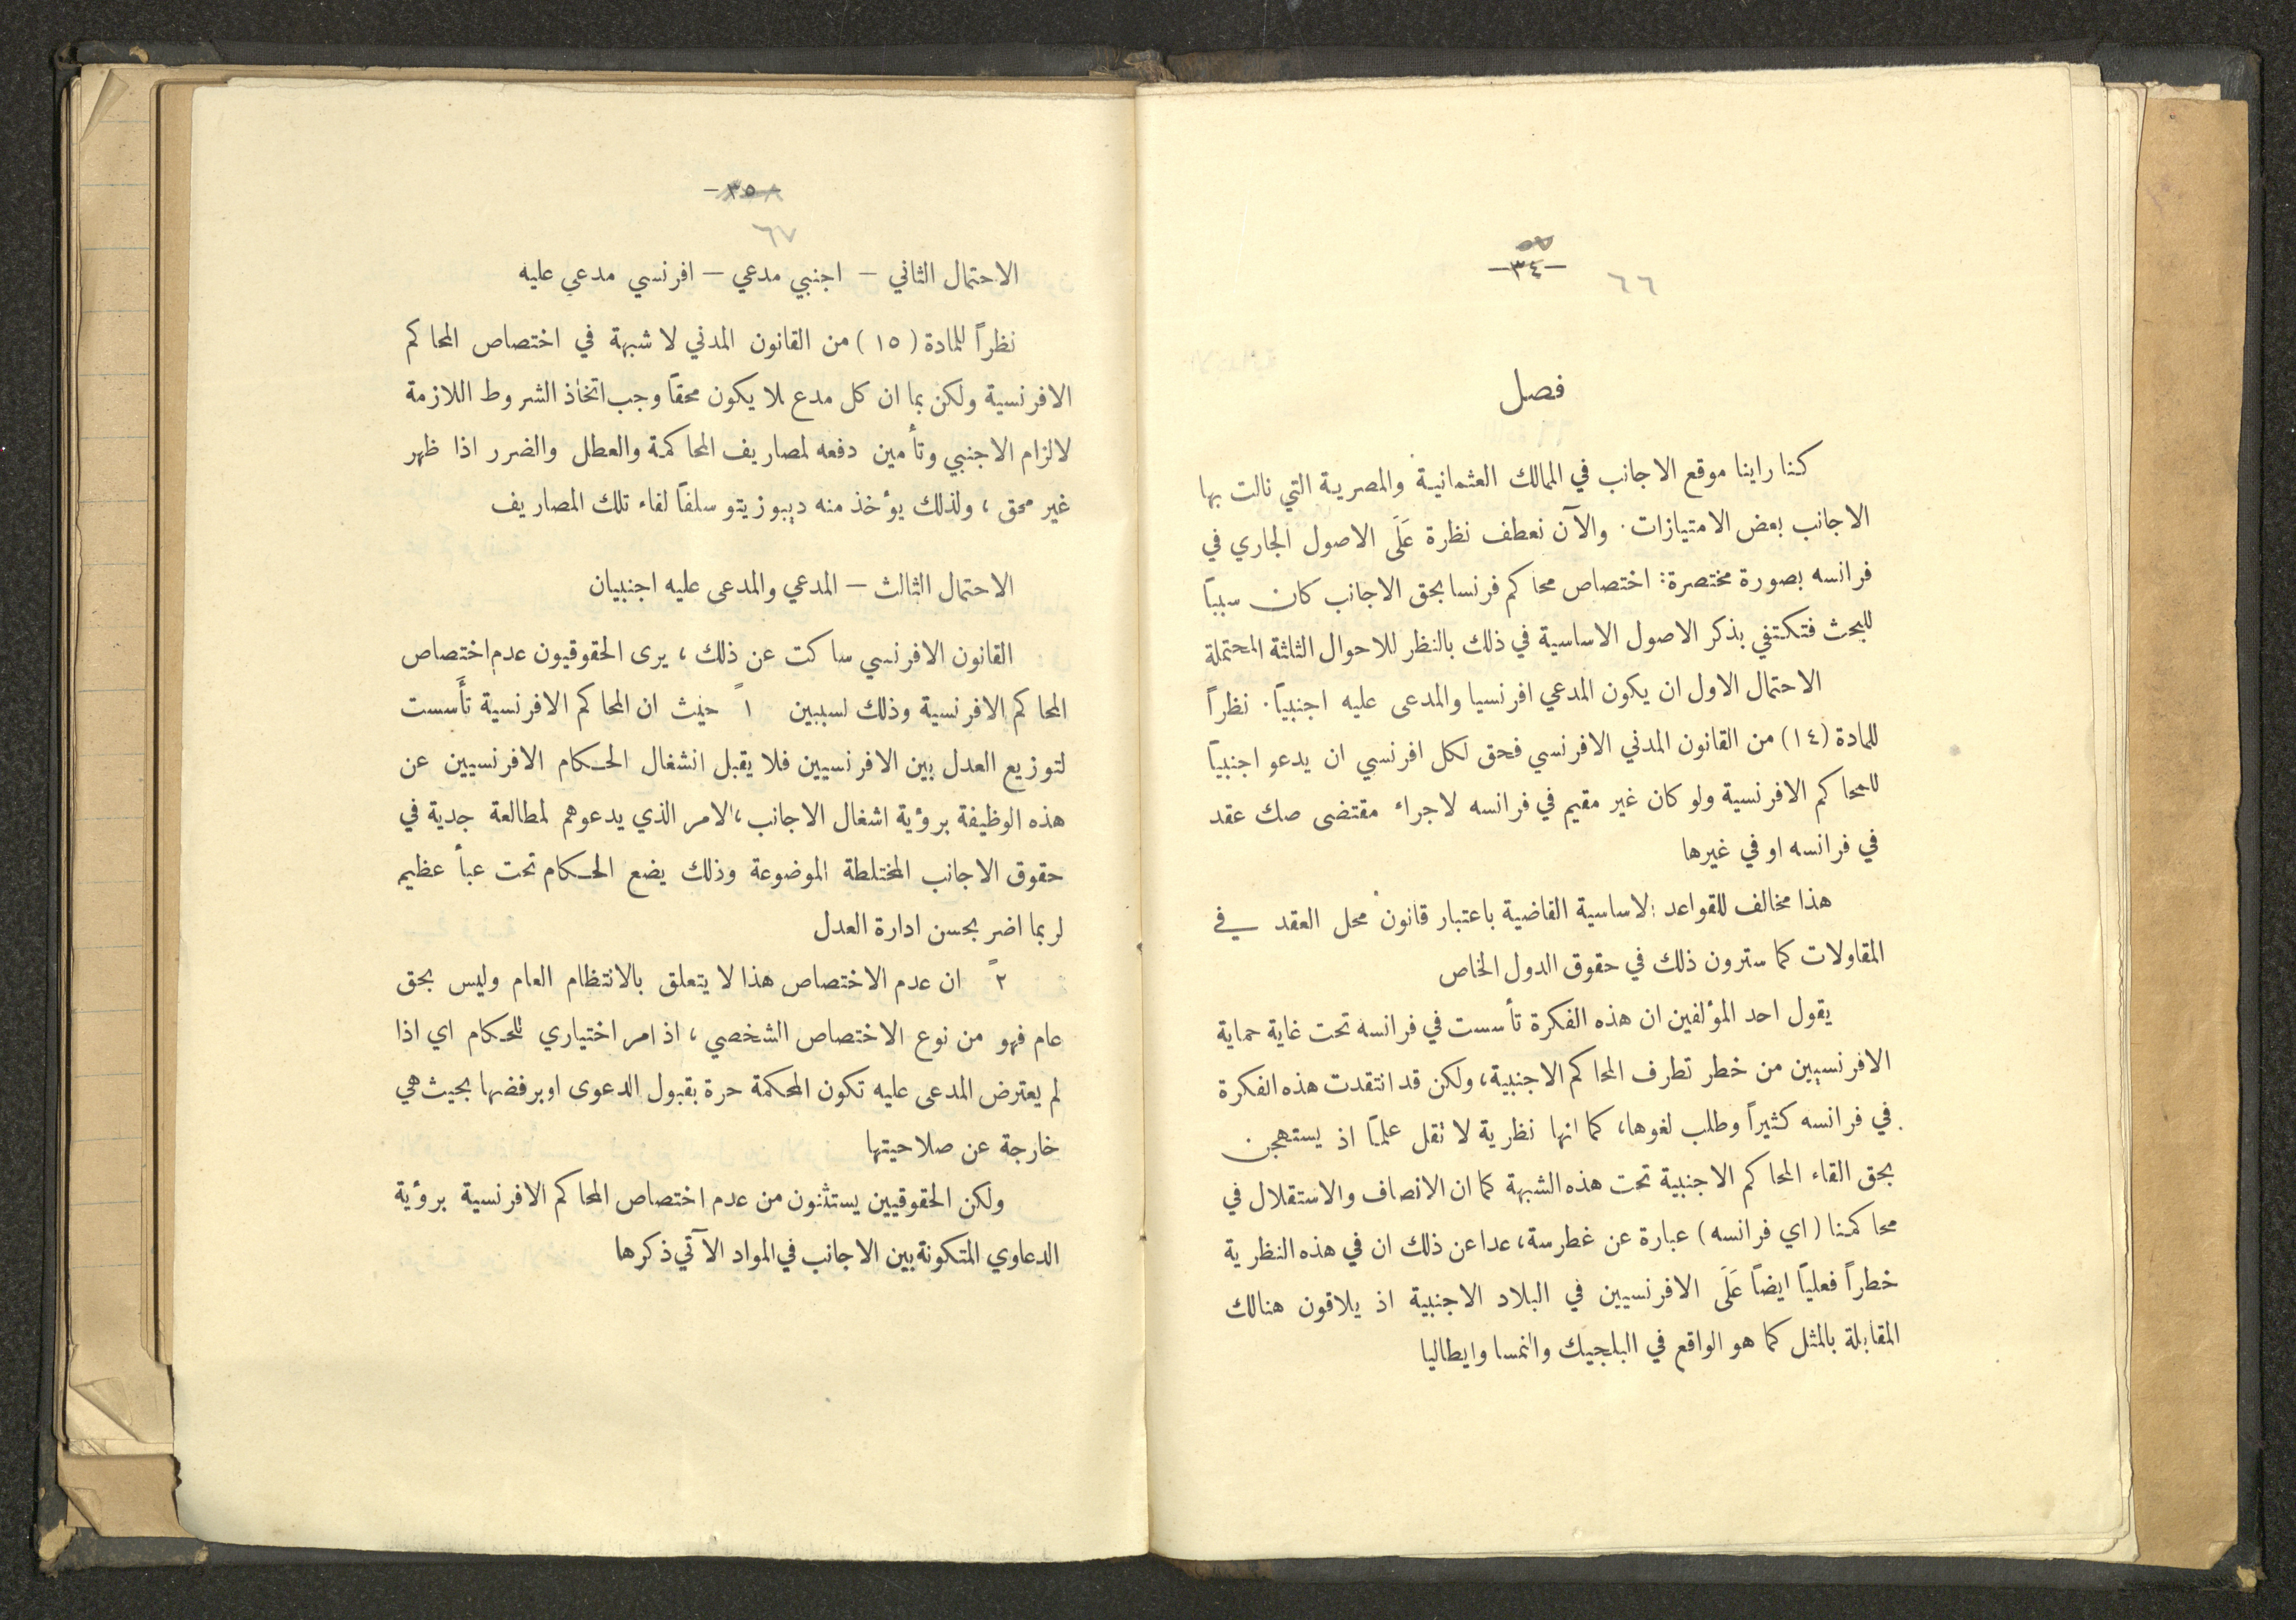 -٣٤-
٦٦
فصل
كنا راينا موقع الاجانب في الممالك العثمانية والمصرية التي نالت بها
الاجانب بعض الامتيازات. والآن نعطف نظرة عَلَى الاصول الجاري في
فرانسه بصورة مختصرة: اختصاص محاكم فرنسا بحق الاجانب كان سبباً
للبحث فتكتفي بذكر الاصول الاساسية في ذلك بالنظر للاحوال الثلثة المحتملة
الاحتمال الاول ان يكون المدعي افرنسيا والمدعى عليه اجنبياً. نظراً
للمادة (١٤) من القانون المدني الافرنسي فحق لكل افرنسي ان يدعو اجنبياً
للمحاكم الافرنسية ولو كان غير مقيم في فرانسه لاجراء مقتضى صك عقد
في فرانسه او في غيرها
هذا مخالف للقواعد الاساسية القاضية باعتبار قانون محل العقد في
المقاولات كما سترون ذلك في حقوق الدول الخاص
يقول احد المؤلفين ان هذه الفكرة تأسست في فرانسه تحت غاية حماية
الافرنسيين من خطر تطرف المحاكم الاجنبية، ولكن قد انتقدت هذه الفكرة
في فرانسه كثيراً وطلب لغوها، كما انها نظرية لا تقل علماً اذ يستهجن
بحق القاء المحاكم الاجنبية تحت هذه الشبهة كما ان الانصاف والاستقلال في
محاكمنا (اي فرانسه) عبارة عن غطرسة، عدا عن ذلك ان في هذه النظرية
خطراً فعلياً ايضاً عَلَى الافرنسيين في البلاد الاجنبية اذ يلاقون هنالك
المقابلة بالمثل كما هو الواقع في البلجيك والنمسا وايطاليا
-٣٥-
٦٧
الاحتمال الثاني – اجنبي مدعي – افرنسي مدعي عليه
نظراً للمادة (١٥) من القانون المدني لا شبهة في اختصاص المحاكم
الافرنسية ولكن بما ان كل مدع لا يكون محقاً وجب اتخاذ الشروط اللازمة
لالزام الاجنبي وتأمين دفعه لمصاريف المحاكمة والعطل والضرر اذا ظهر
غير محق، ولذلك يؤخذ منه ديبوزيتو سلفاً لقاء تلك المصاريف
الاحتمال الثالث – المدعي والمدعى عليه اجنبيان
القانون الافرنسي ساكت عن ذلك، يرى الحقوقيون عدم اختصاص
المحاكم الافرنسية وذلك لسببين ١ً حيث ان المحاكم الافرنسية تأَسست
لتوزيع العدل بين الافرنسيين فلا يقبل انشغال الحكام الافرنسيين عن
هذه الوظيفة برؤية اشغال الاجانب، الامر الذي يدعوهم لمطالعة جدية في
حقوق الاجانب المختلطة الموضوعة وذلك يضع الحكام تحت عبأ عظيم
لربما اضر بحسن ادارة العدل
٢ً ان عدم الاختصاص هذا لا يتعلق بالانتظام العام وليس بحق
عام فهو من نوع الاختصاص الشخصي، اذ امر اختياري للحكام اي اذا
لم يعترض المدعى عليه تكون المحكمة حرة بقبول الدعوى او برفضها بحيث هي
خارجة عن صلاحيتها
ولكن الحقوقيين يستثنون من عدم اختصاص المحاكم الافرنسية برؤية
الدعاوي المتكونة بين الاجانب في المواد الآتي ذكرها